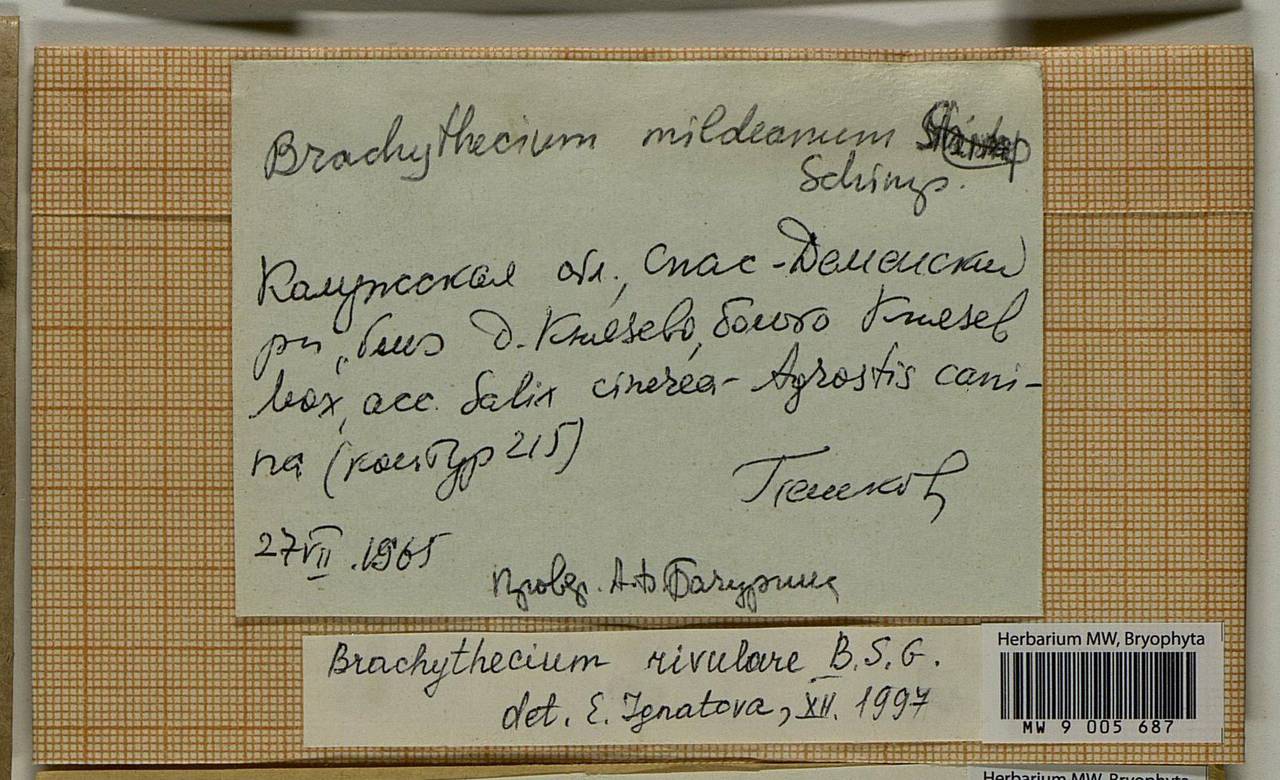 Brachythecium mildeanum
Schimp.
Калужсская обл., Спас-Деменский
рн, близ д. Князево, болото Князев
мох, асс. Salix cinerea - Agrostis cani-
na (контур 215)
Пешков
27 VII. 1965
провер. А. Бачурина
Brachythecium rivulare B.S.G.
det. E. Ignatova, XII. 1997
Herbarium MW, Bryophyta
MW 9 005 687
Herbarium MW, Bryophyta